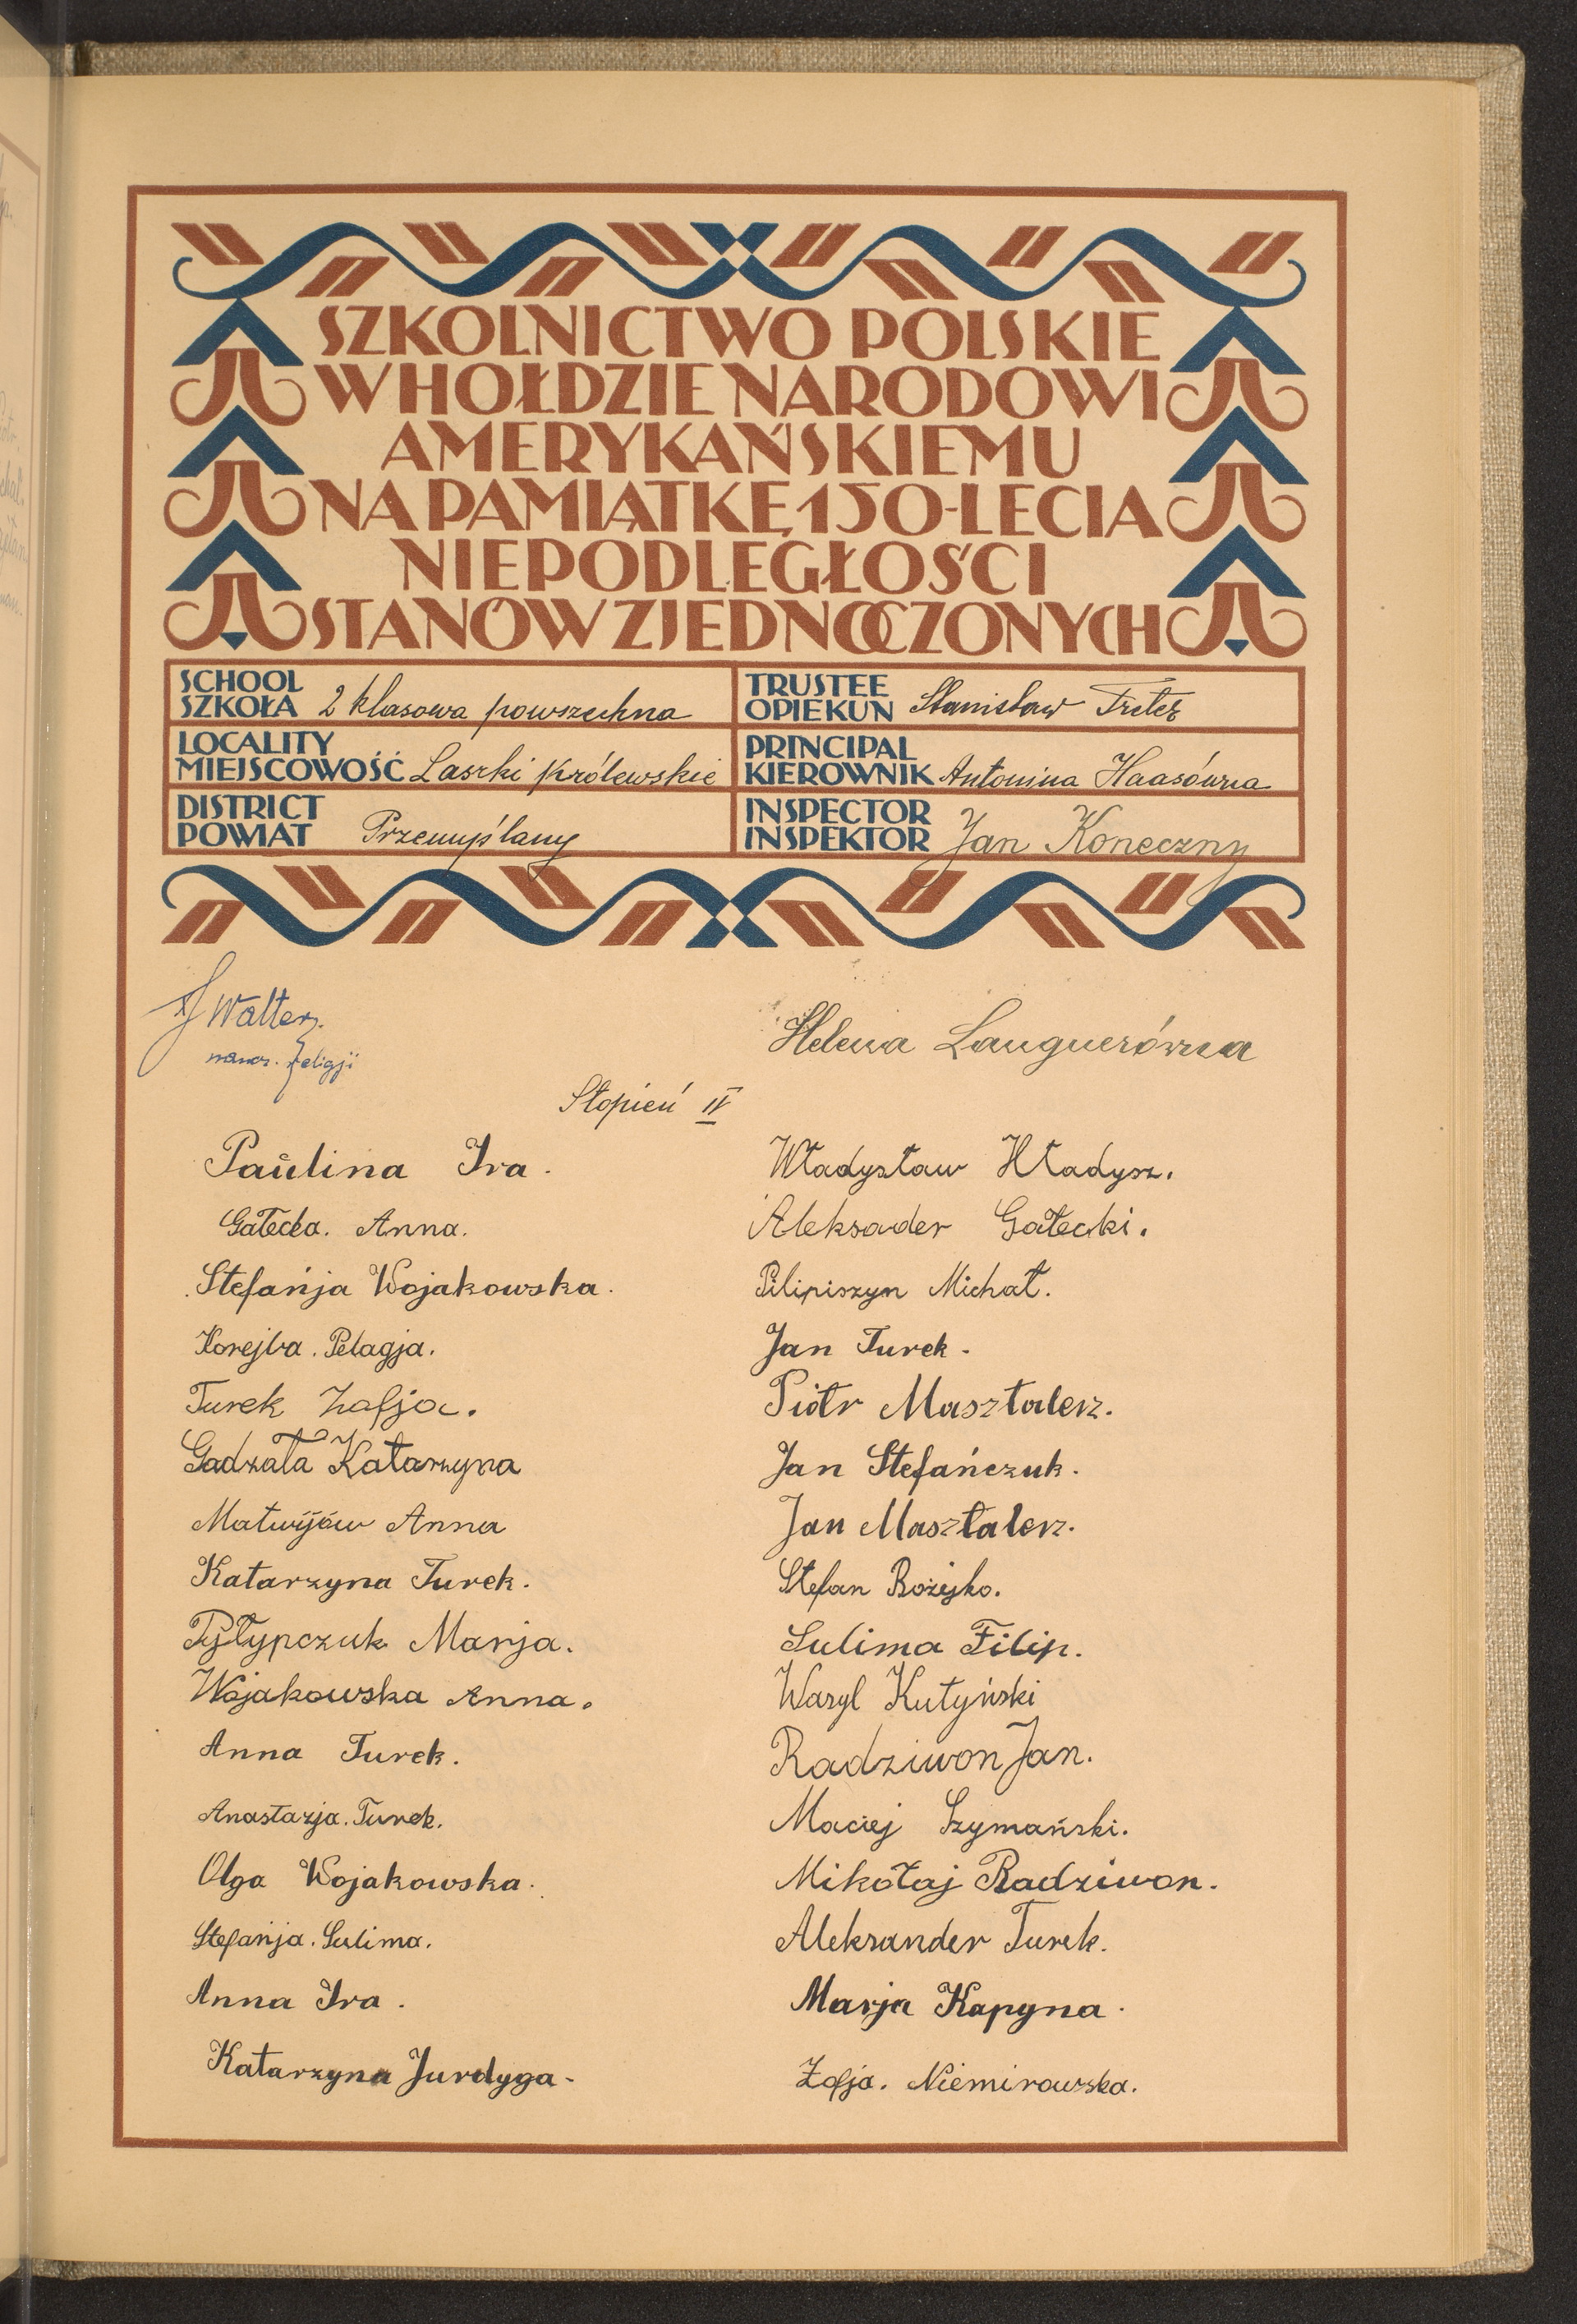 SZKOLNICTWO POLSKIE
W HOŁDZIE NARODOWI
AMERYKAŃSKIEMU
NA PAMIĄTKĘ 150-LECIA
NIEPODLEGŁOŚCI
STANÓW ZJEDNOCZONYCH
SCHOOL
SZKOŁA 2 klasowa powszechna
TRUSTEE
OPIEKUN Stanisław Treter
LOCALITY
MIEJSCOWOŚĆ Laszki Królewskie
PRINCIPAL
KIEROWNIK Antonina Haasówna
DISTRICT
POWIAT Przemyślany
INSPECTOR
INSPEKTOR Jan Koneczny
Walter
religji
Helena Languerówna
Stopień IV
Paulina Ira.
Gałecka. Anna.
Stefańja Wojakowska.
Korejba. Pelagja.
Turek Zofja.
Gadzała Katarzyna
Matwijów Anna
Katarzyna Turek.
Pyłypczuk Marja.
Wojakowska Anna.
Anna Turek.
Anastazja. Turek.
Olga Wojakowska.
Stefańja. Sulima.
Anna Ira.
Katarzyna Jurdyga-
Władysław Hładysz.
Aleksader Gałecki.
Pilipiszyn Michał.
Jan Turek.
Piotr Masztalerz.
Jan Stefańczuk.
Jan Masztalerz.
Stefan Bożejko.
Sulima Filip.
Wasyl Kutyński
Radziwon Jan.
Maciej Szymański.
Mikołaj Radziwon.
Aleksander Turek.
Marja Kapyna.
Zofja. Niemirowska.